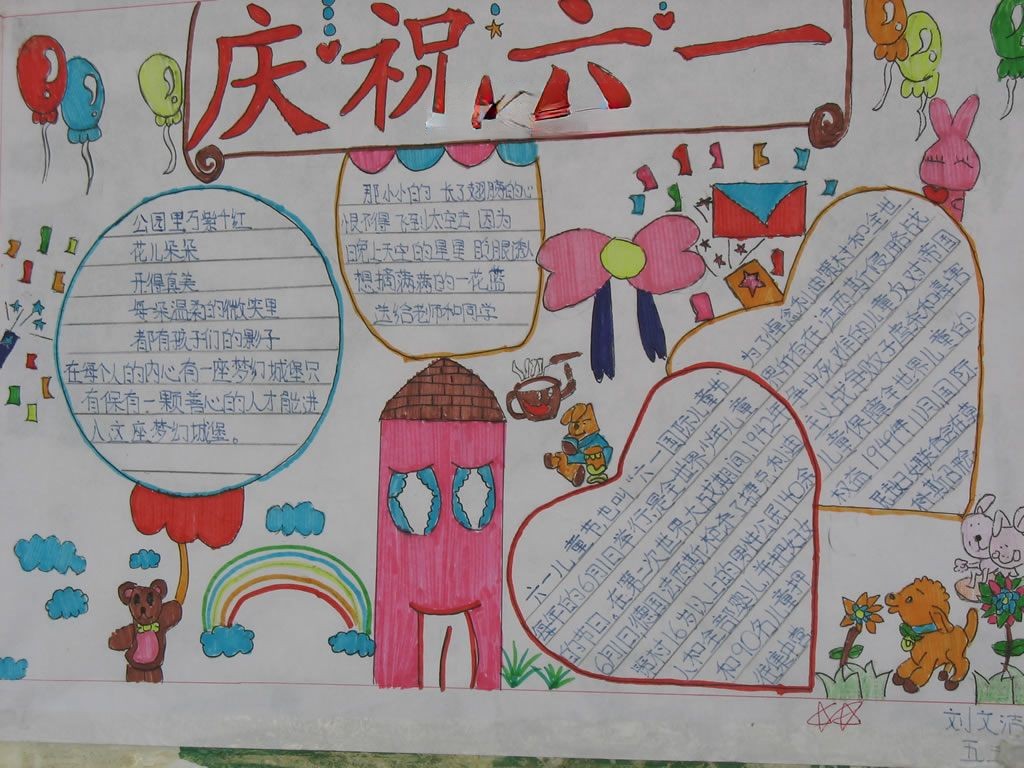 庆祝六一
公园里万紫千红
花儿朵朵
开得真美
每朵温柔的微笑里
都有孩子们的影子
在每个人的内心有一座梦幻城堡只
有保有一颗善心的人才能进
入这座梦幻城堡。
那小小的 长了翅膀的心
恨不得 飞到太空去 因为
晚上天空的星星
想摘满满的一花蓝
送给老师和同学
六一儿童节也叫"六一国际儿童节"
每年的6月1日举行,是全世界少年儿童
的节日。在第二次世界大战期间,1942年
6月1日,德国法西斯枪杀了捷克利迪
策村16岁以上的男性公民140余
人和全部婴儿,并把妇女
和90名儿童押
往集中营
为了悼念利迪策村和全世
界所有在法西斯侵略战
争中死难的儿童,反对帝国
主义战争贩子虐杀和毒害
儿童,保障全世界儿童的
权益,1949年11月国际
刘文洁
五